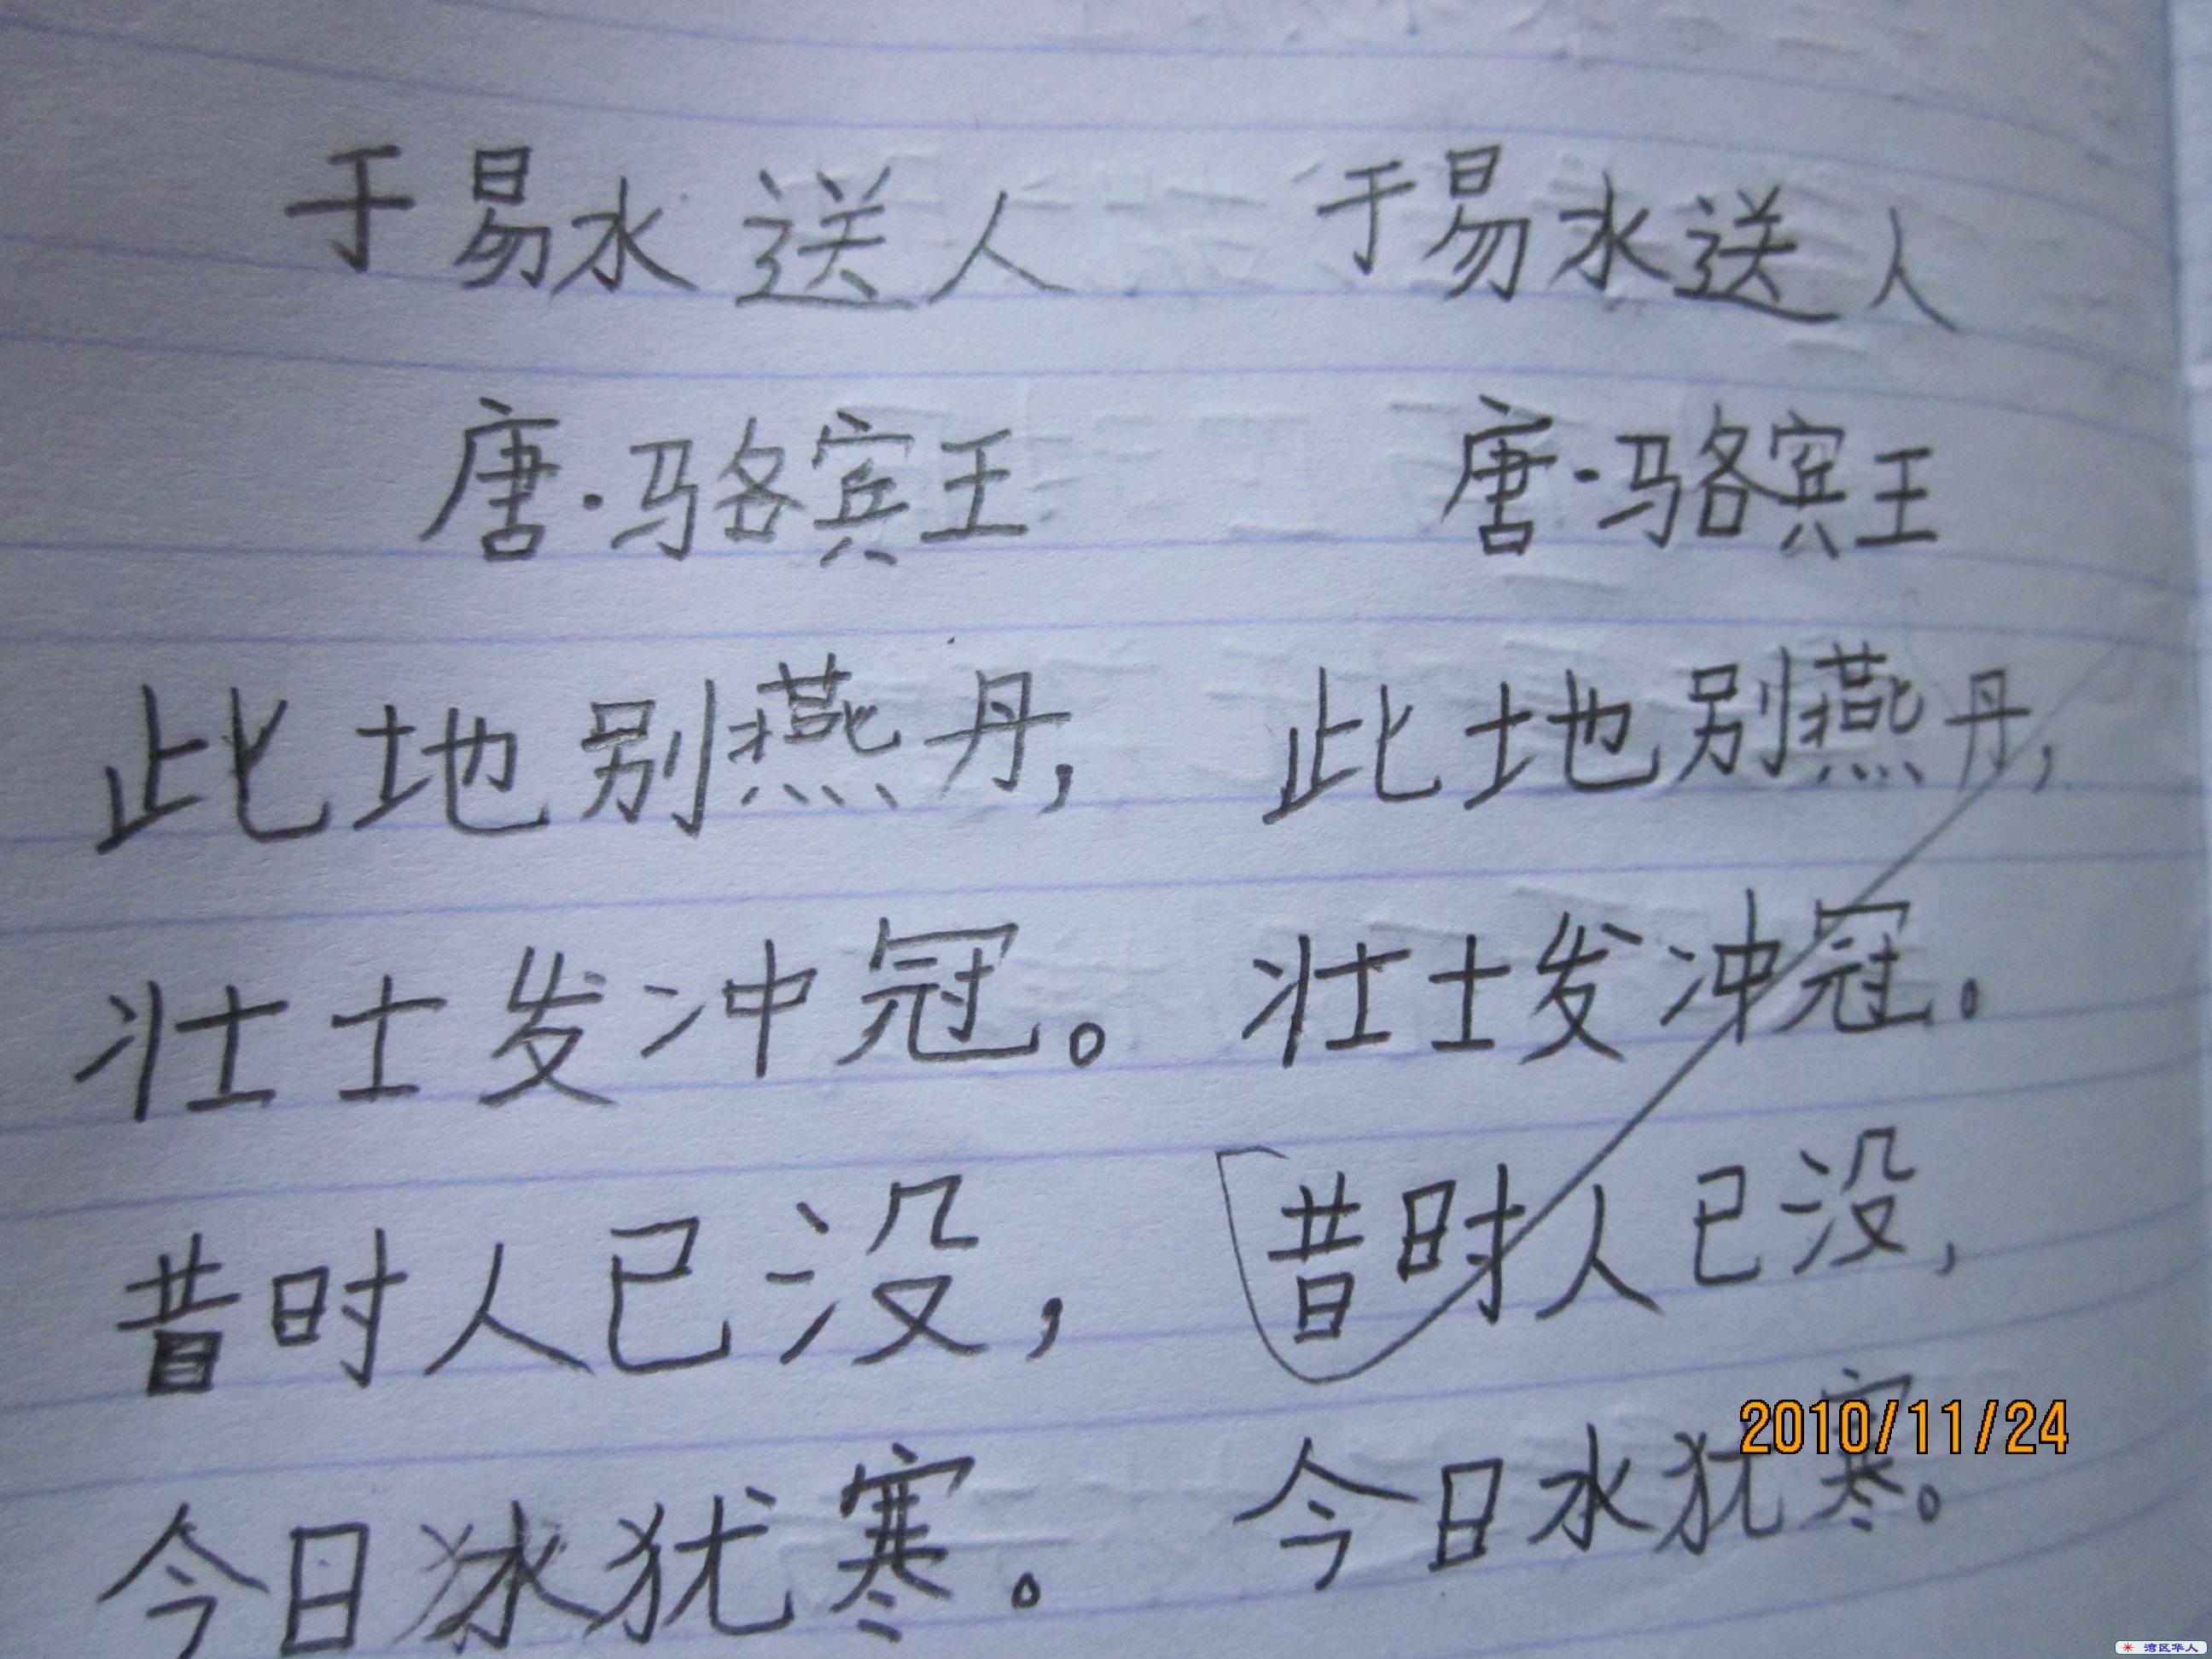 于易水送人 于易水送人
唐·骆宾王 唐·骆宾王
此地别燕丹， 此地别燕丹，
壮士发冲冠。 壮士发冲冠。
昔时人已没， 昔时人已没，
今日水犹寒。 今日水犹寒。
2010/11/24
湾区华人